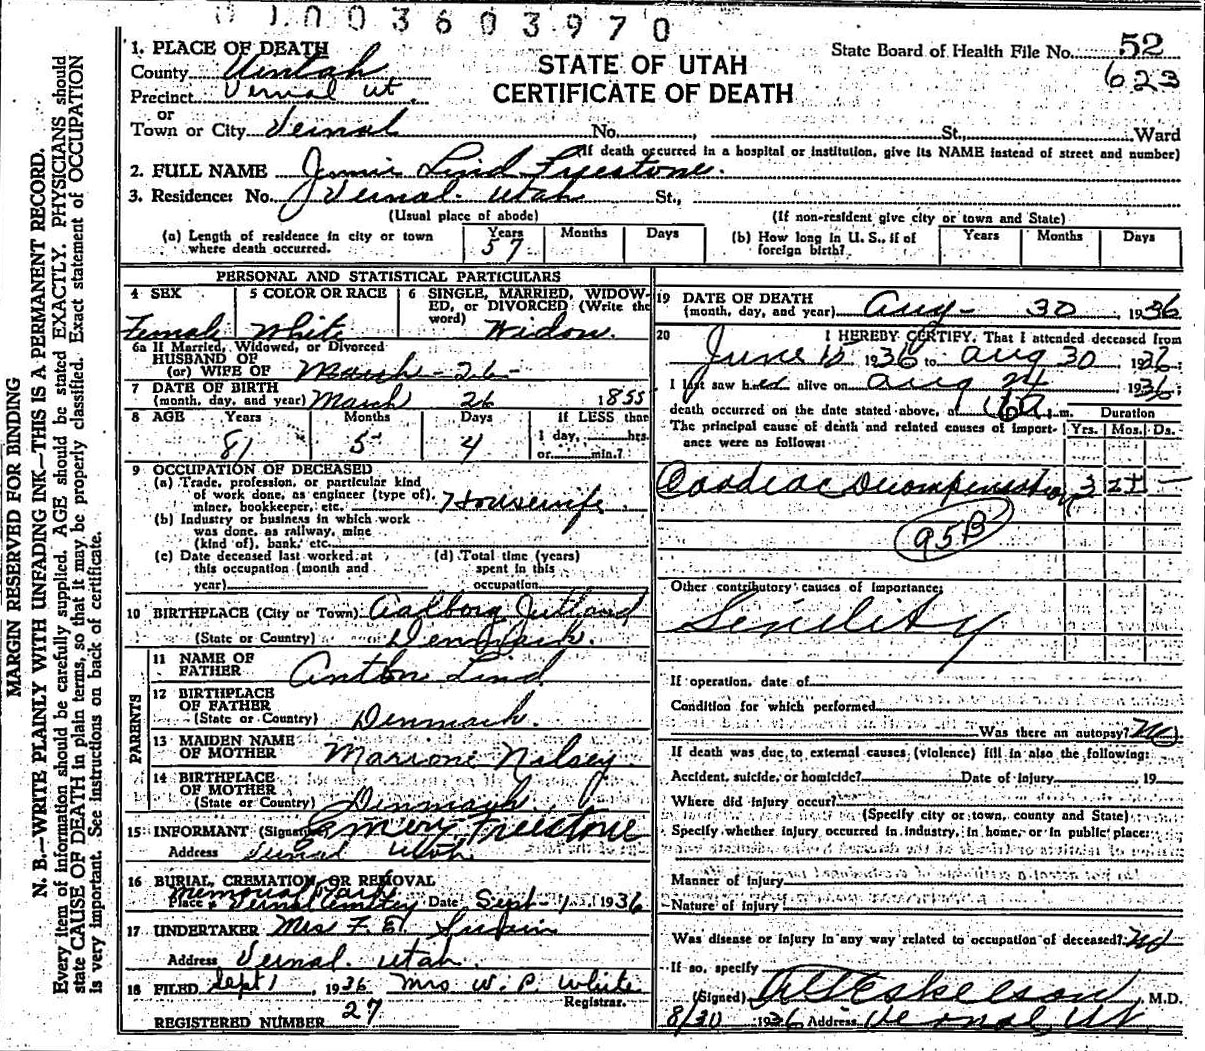 0 1 0 0 3 6 0 3 9 7 0
STATE OF UTAH
CERTIFICATE OF DEATH
State Board of Health File No. 52
623
1. PLACE OF DEATH
County Uintah
Precinct Vernal Ut.
or
Town or City Vernal No. , St. Ward
(If death occurred in a hospital or institution, give its NAME instead of street and number)
2. FULL NAME Jennie Lind Freestone.
3. Residence: No. Vernal. Utah St.,
(Usual place of abode) (If non-resident give city or town and State)
(a) Length of residence in city or town where death occurred. Years 57 Months Days
(b) How long in U. S., if of foreign birth? Years Months Days
PERSONAL AND STATISTICAL PARTICULARS
4 SEX Female
5 COLOR OR RACE White
6 SINGLE, MARRIED, WIDOWED, or DIVORCED (Write the word) Widow.
6a If Married, Widowed, or Divorced
HUSBAND OF
(or) WIFE OF March - 26 -
7 DATE OF BIRTH
(month, day, and year) March 26 1855
8 AGE Years 81 Months 5 Days 4 If LESS than
1 day, hrs.
or min.?
9 OCCUPATION OF DECEASED
(a) Trade, profession, or particular kind
of work done, as engineer (type of),
miner, bookkeeper, etc. Housewife.
(b) Industry or business in which work
was done, as railway, mine
(kind of), bank, etc.
(c) Date deceased last worked at
this occupation (month and
year)
(d) Total time (years)
spent in this
occupation
10 BIRTHPLACE (City or Town) Aalborg Jutland
(State or Country) Denmark.
PARENTS
11 NAME OF
FATHER Anton Lind
12 BIRTHPLACE
OF FATHER
(State or Country) Denmark.
13 MAIDEN NAME
OF MOTHER Marione Nilsey
14 BIRTHPLACE
OF MOTHER
(State or Country) Denmark.
15 INFORMANT (Signature) Emery Freestone
Address Vernal Utah.
16 BURIAL, CREMATION, OR REMOVAL
Memorial Park
Place Vernal Date Sept - 1 1936
17 UNDERTAKER Mrs F. E.
Address Vernal. Utah.
18 FILED Sept 1, 1936 Mrs W. P. White
Registrar.
REGISTERED NUMBER 27
19 DATE OF DEATH
(month, day, and year) Aug - 30, 1936
20 I HEREBY CERTIFY, That I attended deceased from
June 10 1936 to Aug 30 1936
I last saw her alive on Aug 24 1936;
death occurred on the date stated above, at m. Duration
The principal cause of death and related causes of importance were as follows: Yrs. Mos. Ds.
Cardiac Decompensation
95B
Other contributory causes of importance:
Senility
If operation, date of
Condition for which performed
Was there an autopsy? No
If death was due to external causes (violence) fill in also the following:
Accident, suicide, or homicide? Date of injury , 19
Where did injury occur?
(Specify city or town, county and State)
Specify whether injury occurred in industry, in home, or in public place:
Manner of injury
Nature of injury
Was disease or injury in any way related to occupation of deceased? No
If so, specify
(Signed) Eskelson, M.D.
8/30 1936 Address Vernal, Ut.
MARGIN RESERVED FOR BINDING
N. B.—WRITE PLAINLY WITH UNFADING INK—THIS IS A PERMANENT RECORD.
Every item of information should be carefully supplied. AGE should be stated EXACTLY. PHYSICIANS should
state CAUSE OF DEATH in plain terms, so that it may be properly classified. Exact statement of OCCUPATION
is very important. See instructions on back of certificate.